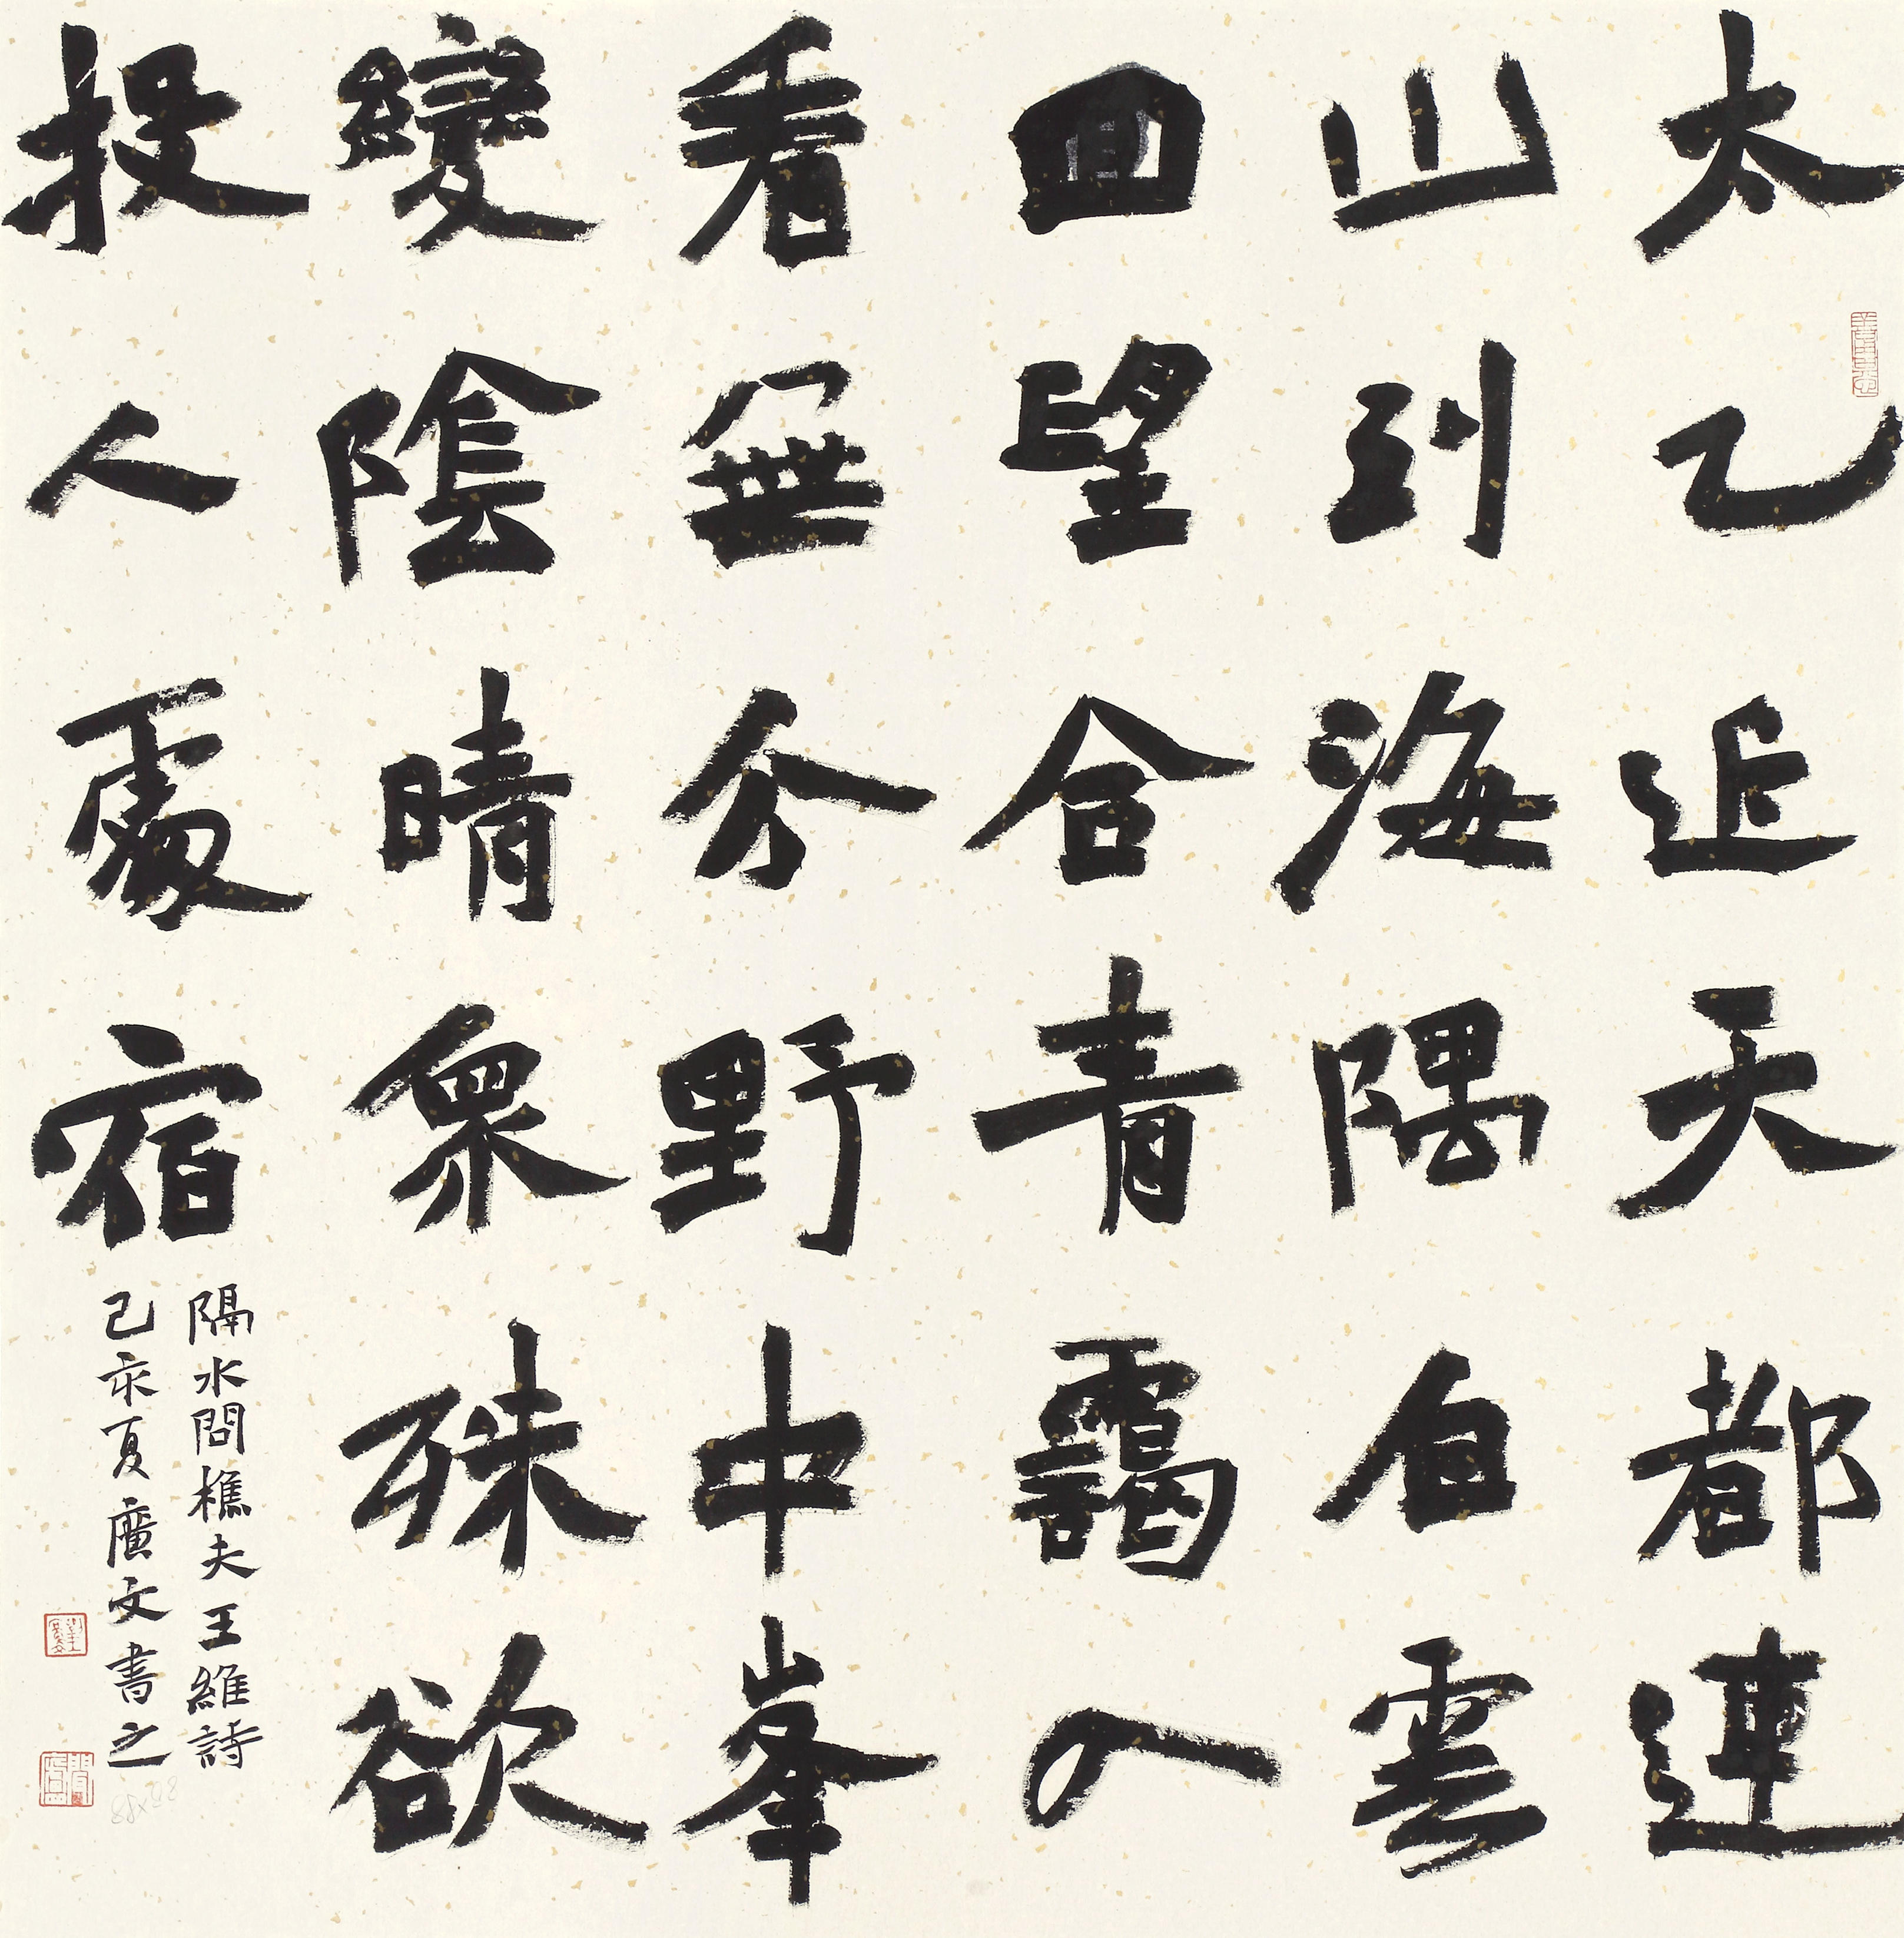 太乙近天都連
山到海隅白雲
回望合青靄入
看無分野中峯
變陰晴衆殊欲
投人處宿
隔水問樵夫王維詩
己亥夏廣文書之
88×88